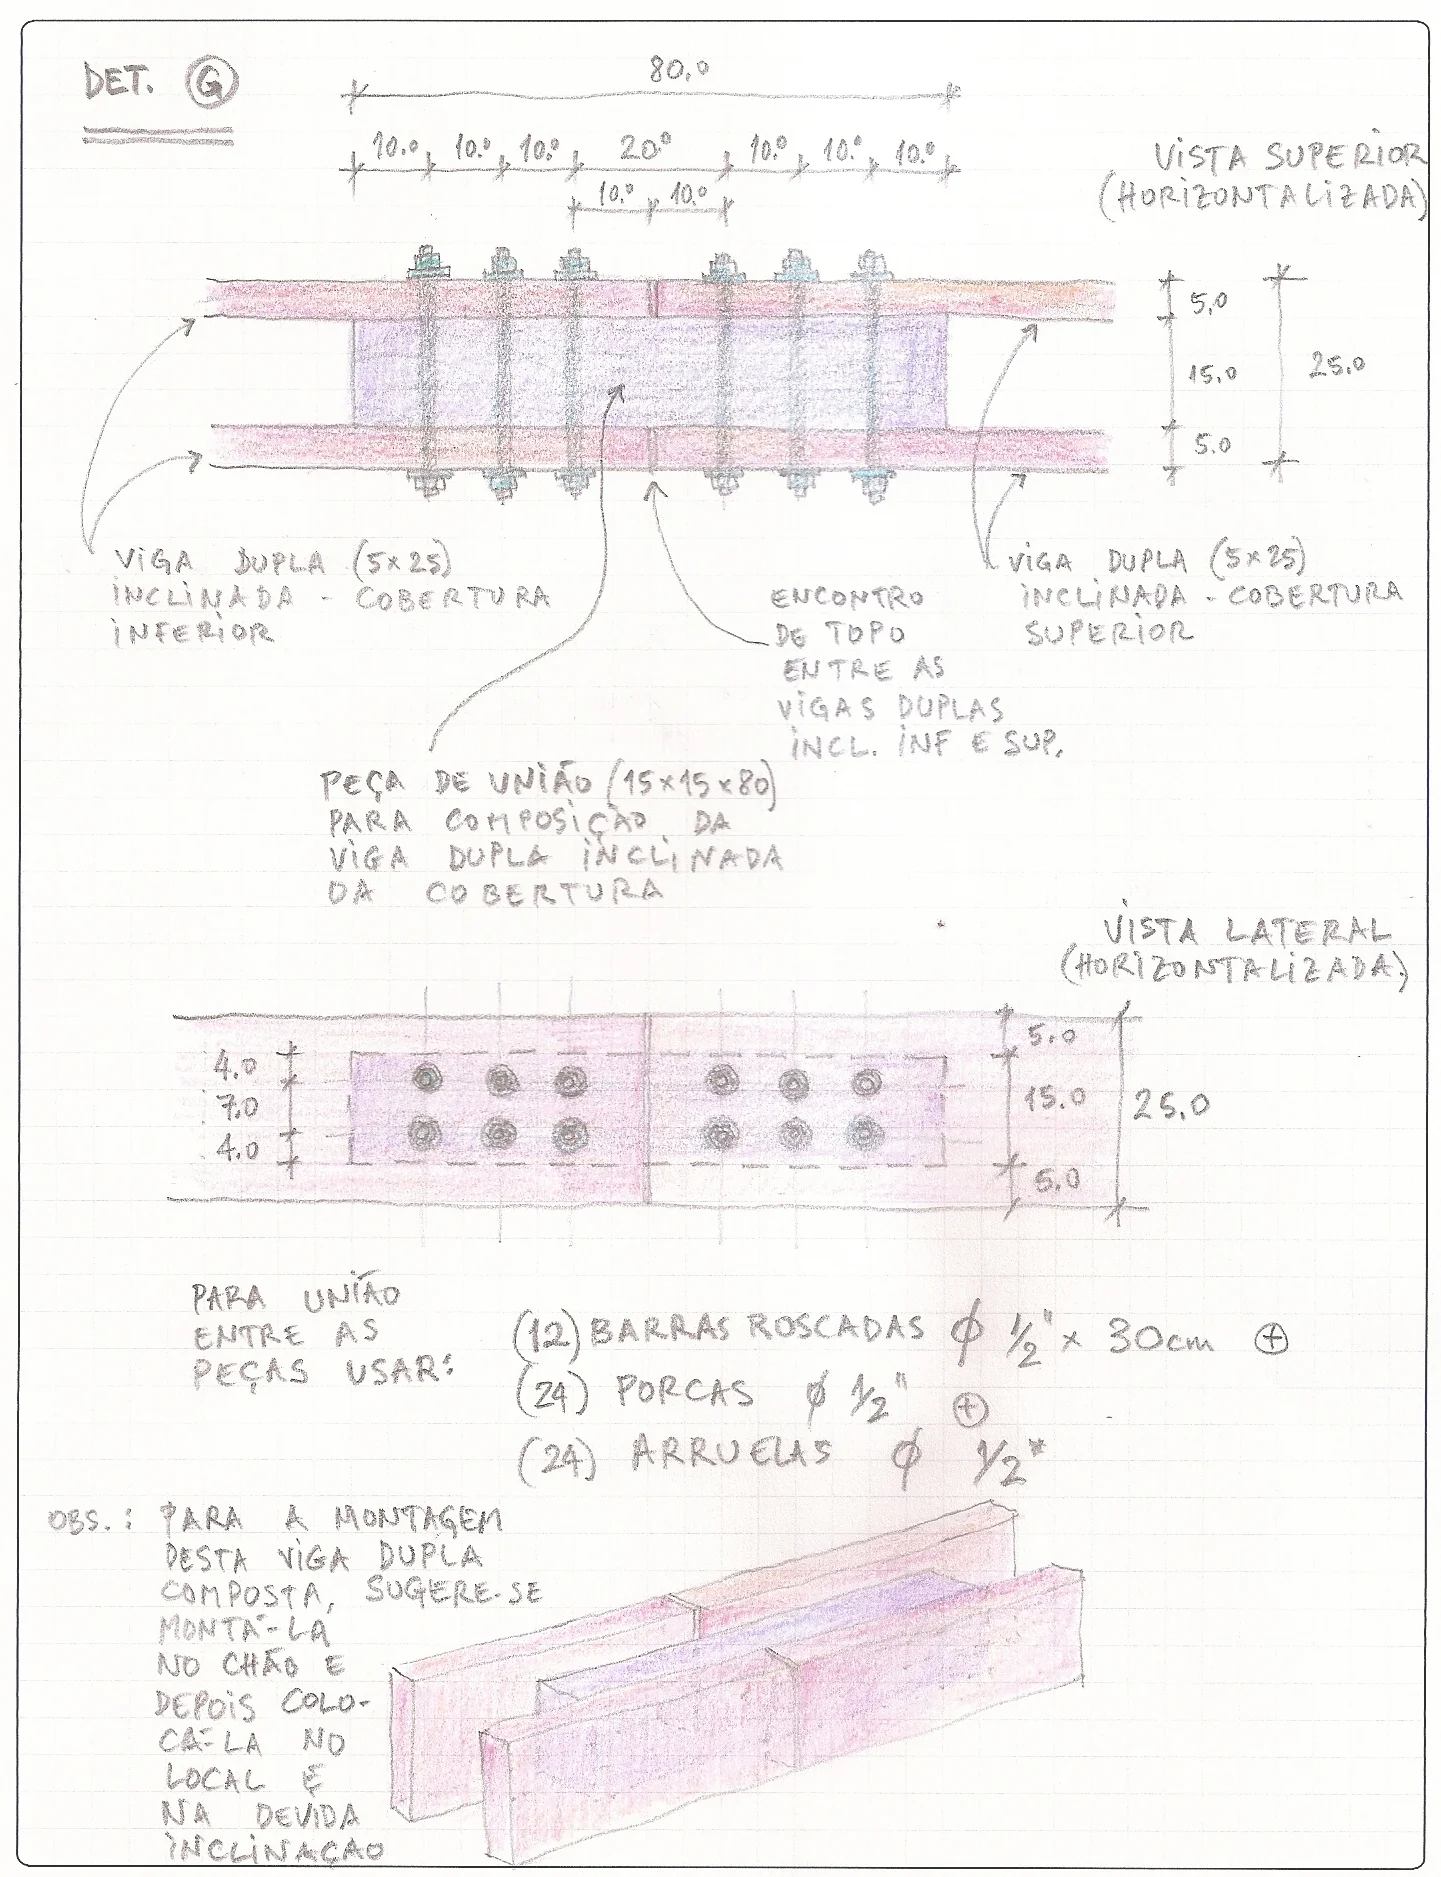 DET. G
80.0
10.0 10.0 10.0 20.0 10.0 10.0 10.0
10.0 10.0
VISTA SUPERIOR
(HORIZONTALIZADA)
5.0
15.0
5.0
25.0
VIGA DUPLA (5x25)
INCLINADA - COBERTURA
INFERIOR
ENCONTRO
DE TOPO
ENTRE AS
VIGAS DUPLAS
INCL. INF E SUP.
VIGA DUPLA (5x25)
INCLINADA - COBERTURA
SUPERIOR
PEÇA DE UNIÃO (15x15x80)
PARA COMPOSIÇÃO DA
VIGA DUPLA INCLINADA
DA COBERTURA
VISTA LATERAL
(HORIZONTALIZADA)
4.0
7.0
4.0
5.0
15.0
5.0
25.0
PARA UNIÃO
ENTRE AS
PEÇAS USAR:
(12) BARRAS ROSCADAS ϕ 1/2" x 30cm ⊕
(24) PORCAS ϕ 1/2" ⊕
(24) ARRUELAS ϕ 1/2"
OBS.: PARA A MONTAGEM
DESTA VIGA DUPLA
COMPOSTA, SUGERE-SE
MONTÁ-LA
NO CHÃO E
DEPOIS COLO-
CÁ-LA NO
LOCAL E
NA DEVIDA
INCLINAÇÃO